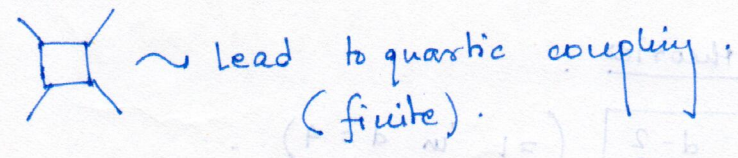 ~ Lead to quartic coupling.
(finite).